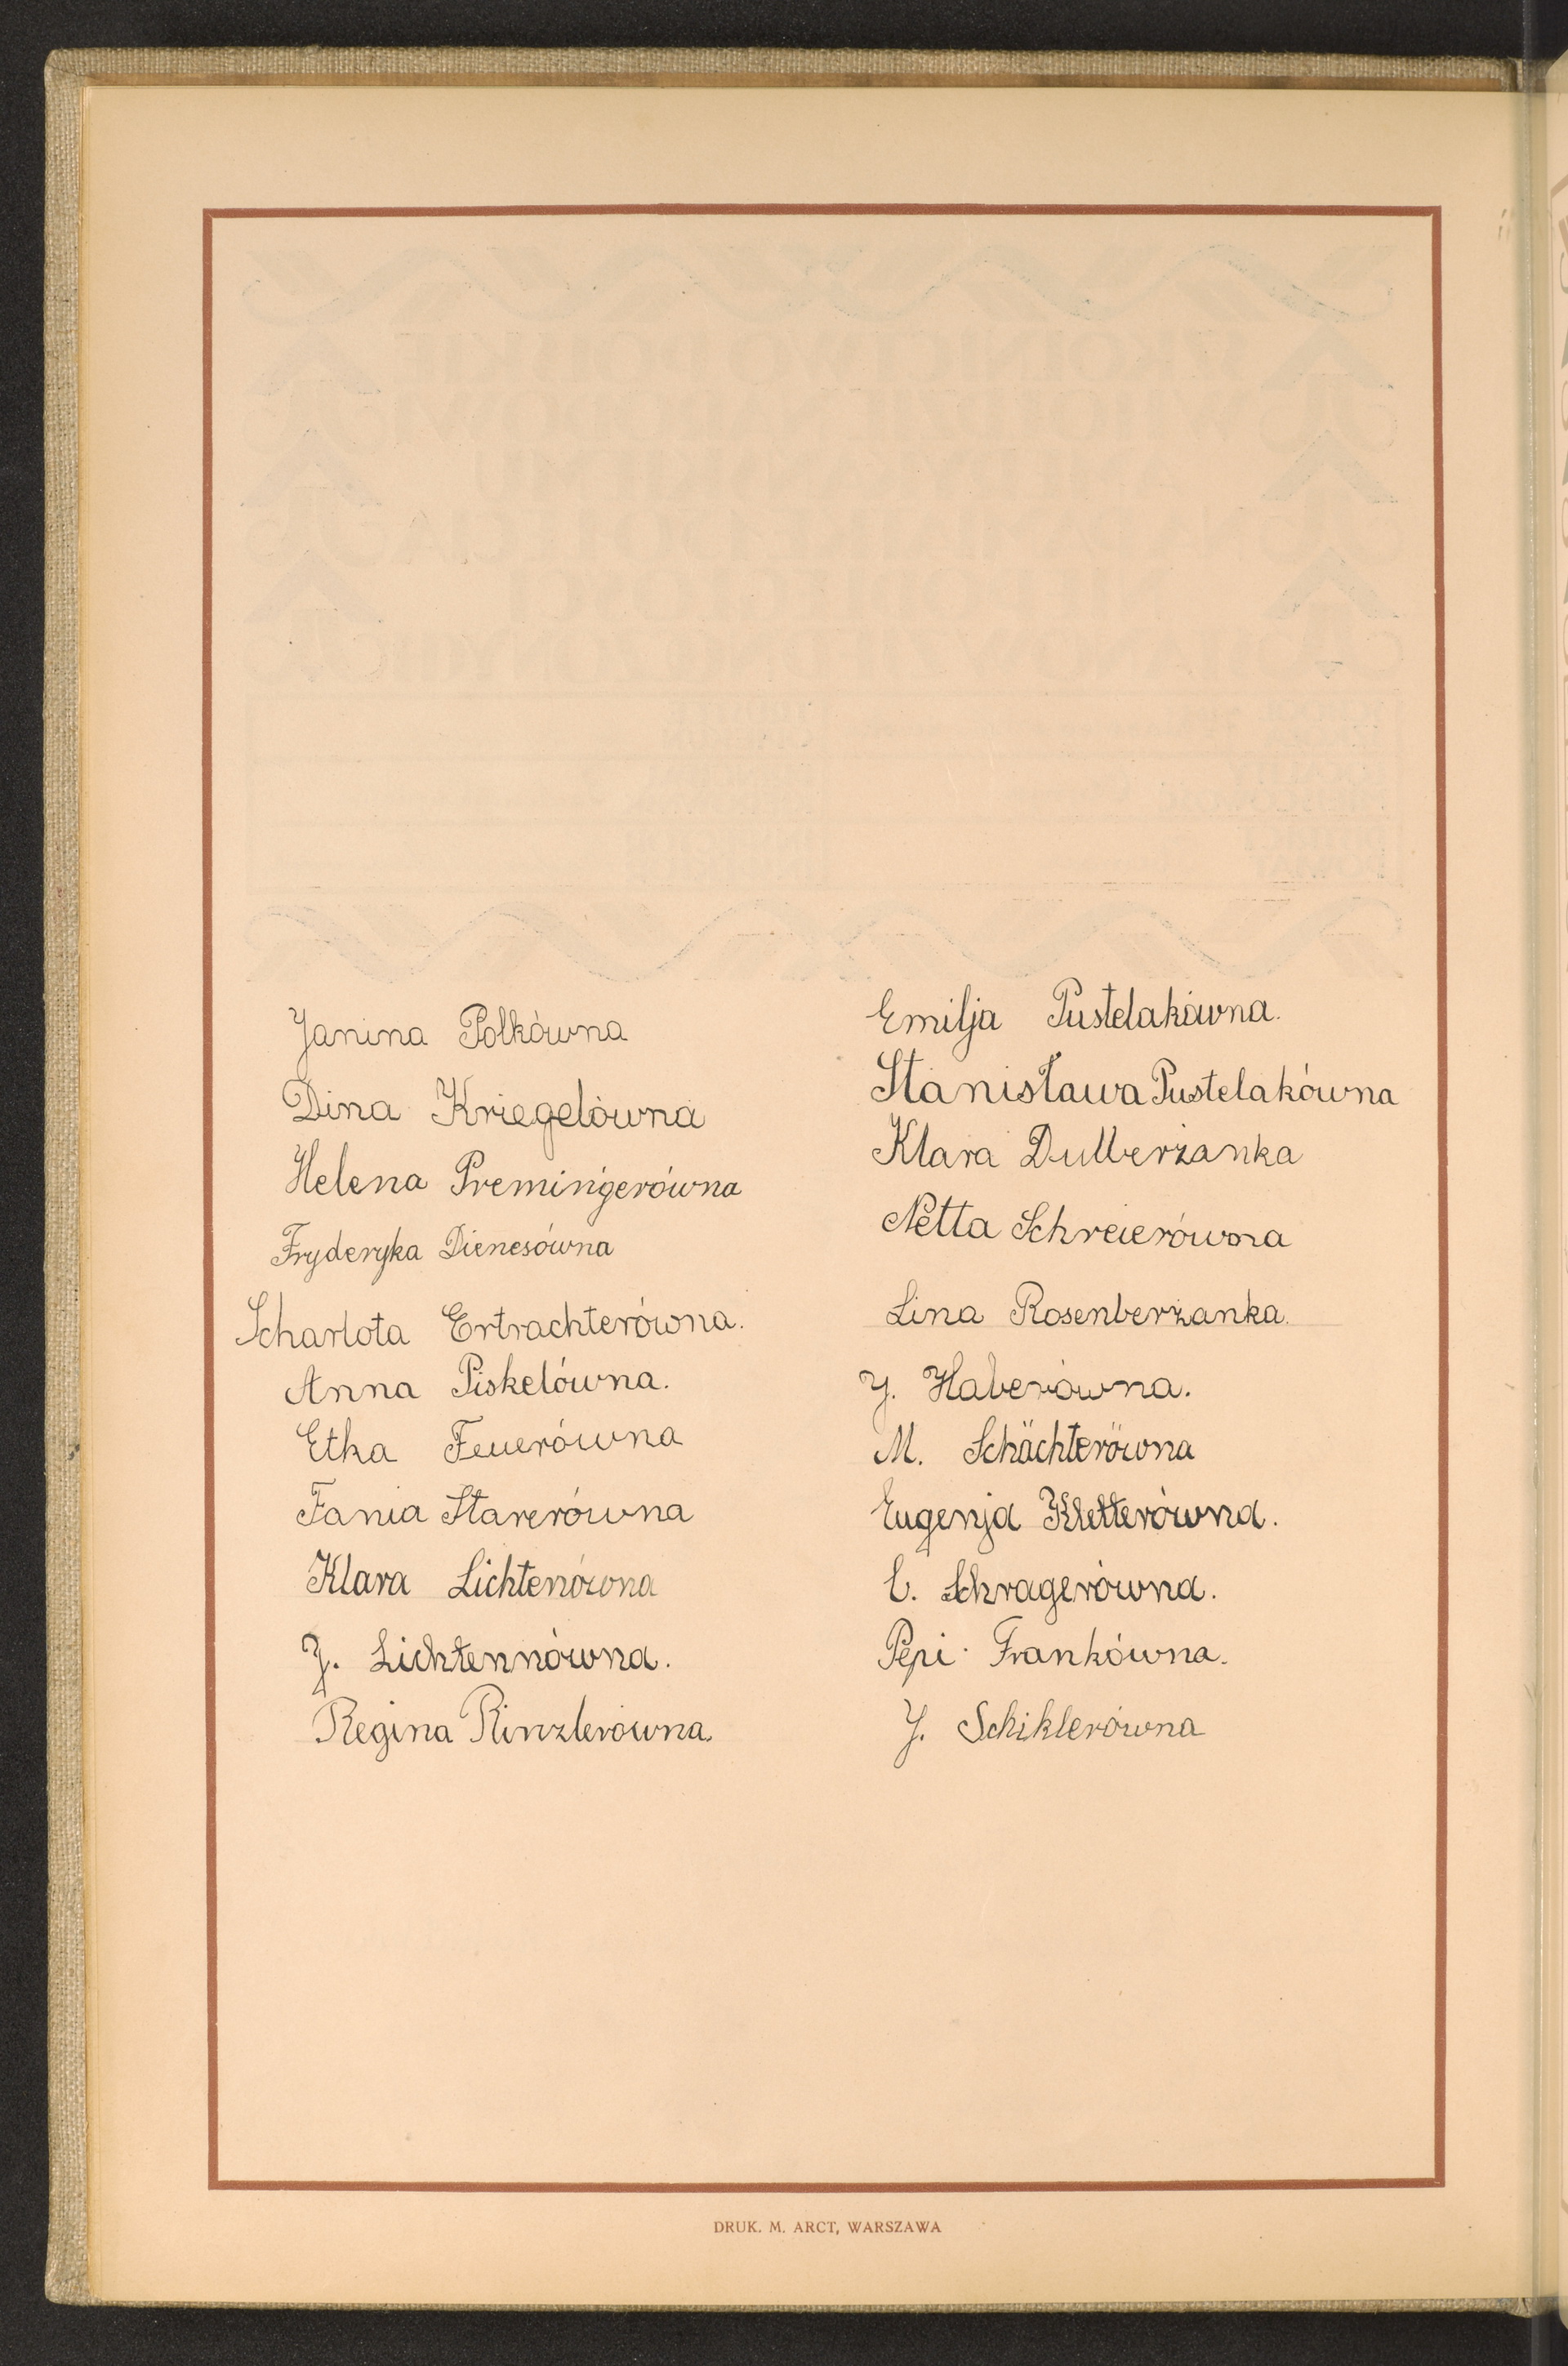 Janina Polkówna
Dina Kriegelówna
Helena Premingerówna
Fryderyka Dienesówna
Scharlota Ertrachterówna.
Anna Piskelówna.
Etka Feuerówna
Fania Starerówna
Klara Lichtenówna
J. Lichtennówna.
Regina Rinzlerówna.
Emilja Pustelakówna.
Stanisława Pustelakówna
Klara Dulberżanka
Netta Schreierówna
Lina Rosenberżanka.
J. Haberówna.
M. Schächterówna
Eugenja Kletterówna.
Schragerówna.
Pepi Frankówna.
J. Schiklerówna
DRUK. M. ARCT, WARSZAWA